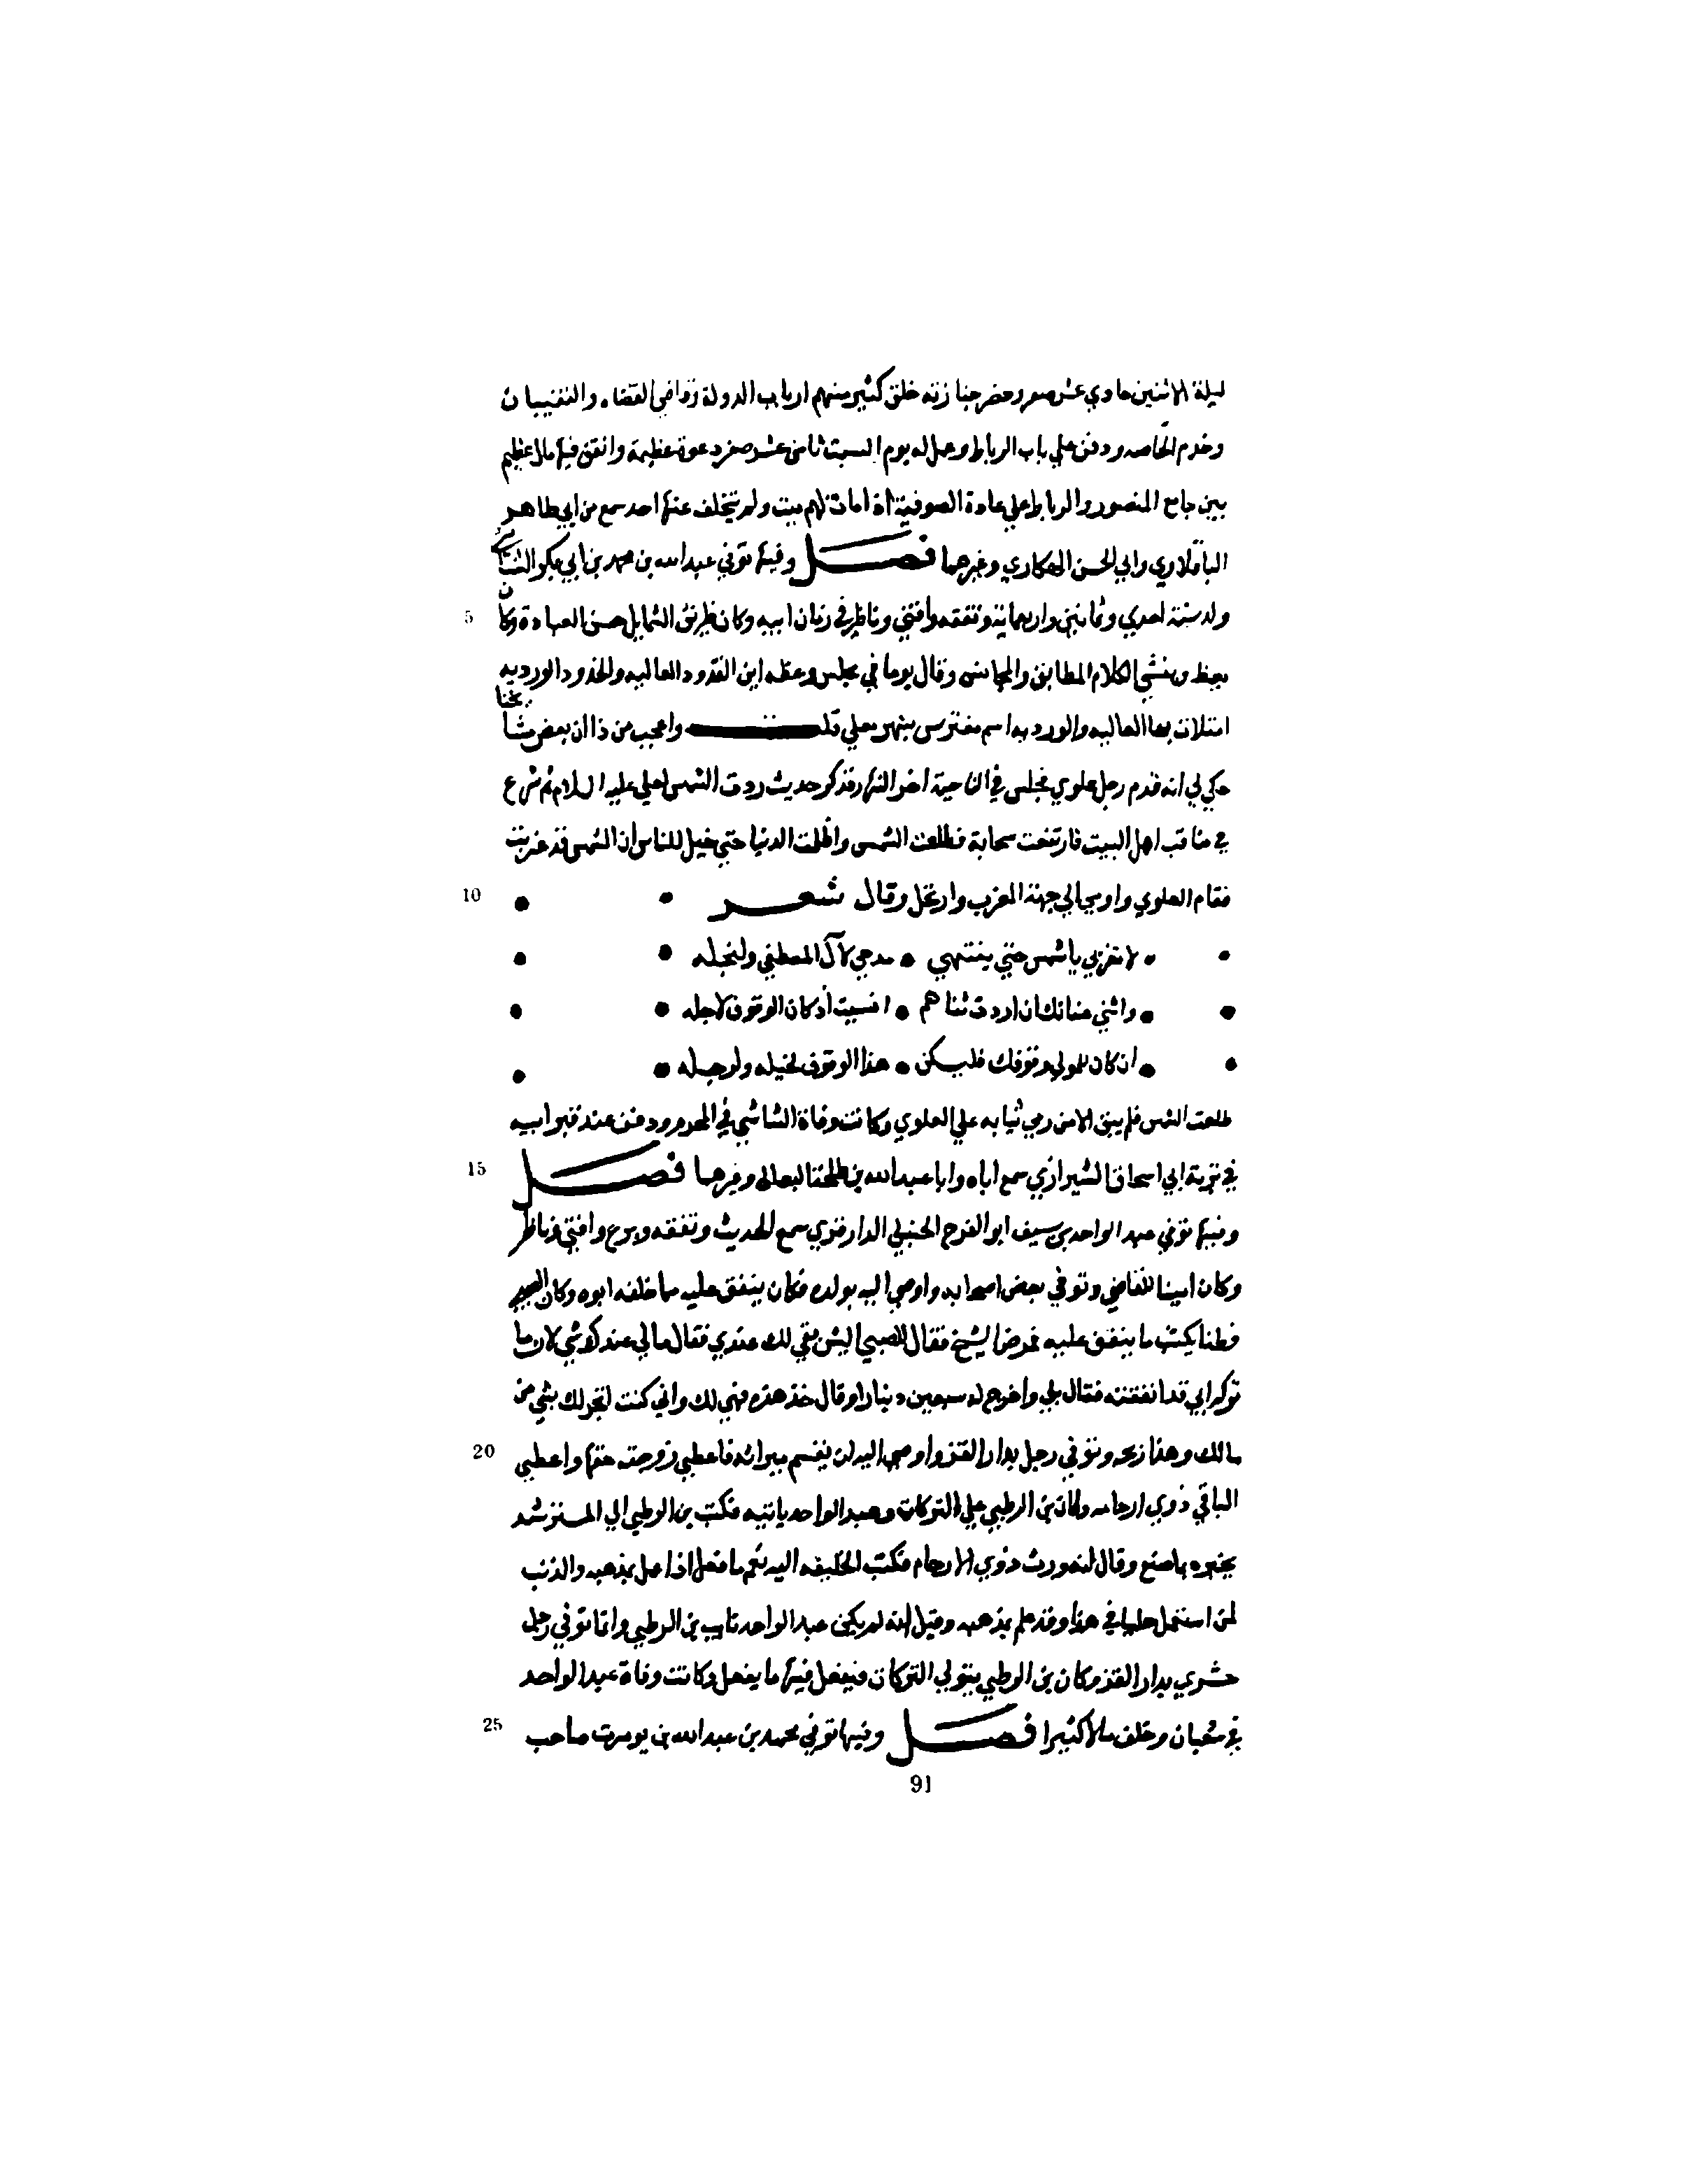 ليلة الاثنين حادي عشر صفر وحضر جنازته خلق كثير منهم ارباب الدولة وقاضي القضاه والنقيبان
وخدم الخاصه ودفن علي باب الرباط وعمل له يوم السبت ثامن عشر صفر دعوة عظيمة وانفق فيها مال عظيم
بين جامع المنصور والرباط علي عادة الصوفية اذا مات لهم ميت ولم يتخلف عنها احد سمع من ابي طاهر
الباقلاوي وابي الحسن الهكاري وغيرهما فصل وفيها توفي عبد الله بن محمد بن ابي بكر الشاشي
5 ولد سنة احدي وثمانين واربعماية وتفقه وافتي وناظر في زمان ابيه وكان ظريف الشمايل حسن العبادة وكان
يعظ وينشي الكلام المطابق والمجانس وقال يوما في مجلس وعظه اين القدود العاليه والخدود الورديه
امتلات بها العاليه والورديه اسم مقبرتين بنهر معلي قلت واعجب من ذا ان بعض مشايخنا
حكي لي انه قدم رجل علوي فجلس في الناحية اخر النهار فذكر حديث ردت الشمس لعلي عليه السلام ثم شرع
في مناقب اهل البيت فارتفعت سحابة فطلعت الشمس واظلمت الدنيا حتي خيل للناس ان الشمس قد غربت
10 فقام العلوي واومي الي جهة المغرب وارتجل وقال شعر
لا تغربي يا شمس حتي ينتهي • مدحي لآل المصطفي ولنجله
واثني عنانك ان اردت ثناهم • انسيت اذ كان الوقوف لاجله
ان كان للمولي وقوفك فليكن • هذا الوقوف لخيله ولرجله
طلعت الشمس فلم يبق الا من رمي ثيابه علي العلوي وكانت وفاة الشاشي في المحرم ودفن عند قبر ابيه
15 في تربة ابي اسحاق الشيرازي سمع اباه وابا عبد الله بن طلحة النعالي وغيرهما فصل
وفيها توفي عبد الواحد بن سيف ابو الفرج الحنبلي الدارقزي سمع الحديث وتفقه وبرع وافتي وناظر
وكان امينا للقاضي وتوفي بعض اصحابه واوصي اليه بولده فكان ينفق عليه مما خلفه ابوه وكان الصبي
فطنا يكتب ما ينفق عليه فمرض الشيخ فقال للصبي ايش بقي لك عندي فقال مالي عندك شي لان ما
تركه ابي قد انفقته فقال بلي واخرج له سبعين دينارا وقال خذ هذه فهي لك واني كنت اتجر لك بشي من
20 مالك وهذا ربحه وتوفي رجل بدار القز واوصي اليه ان يقسم ميراثه فاعطي زوجته حقها واعطي
الباقي ذوي ارحامه وكان بن الرطبي علي التركات وعبد الواحد نايبه فكتب بن الرطبي الي المسترشد
يخبره بما صنع وقال انه ورث ذوي الارحام فكتب الخليفه اليه نعم ما فعل اذا عمل بمذهبه والذنب
لمن استعمل حنبليا في هذا وقد علم مذهبه وقيل انه لم يكن عبد الواحد نايب بن الرطبي وانما توفي رجل
حشري بدار القز وكان بن الرطبي يتولي التركات فيفعل فيها ما يفعل وكانت وفاة عبد الواحد
25 في شعبان وخلف مالا كثيرا فصل وفيها توفي محمد بن عبد الله بن تومرت صاحب
91